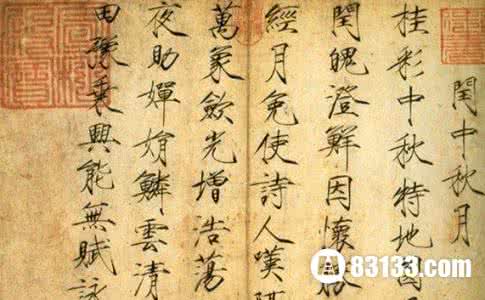 閏中秋月
桂彩中秋特地圓
閏魄澄鮮因懷勝
經月免使詩人嘆隔
萬象斂光增浩蕩
夜助嬋娟鱗雲清
田豫乘興能無賦詠
83133.com